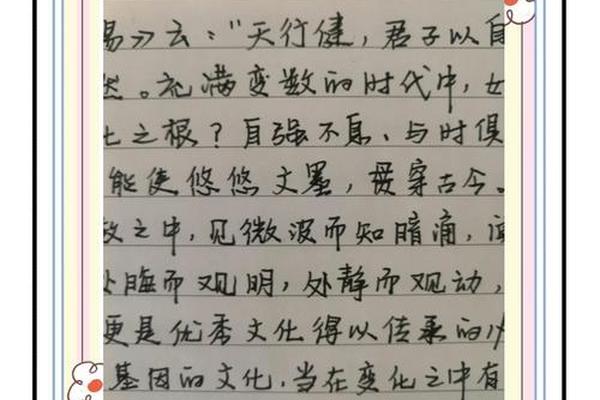 易》云："天行健，君子以自
然。充满变数的时代中，女
七之根？自强不息、与时俱
能使悠悠文墨，贯穿古今。
数之中，见微波而知暗涌，闻
处晦而观明，处静而观动，
更是优秀文化得以传承的
基因的文化，当在变化之中有